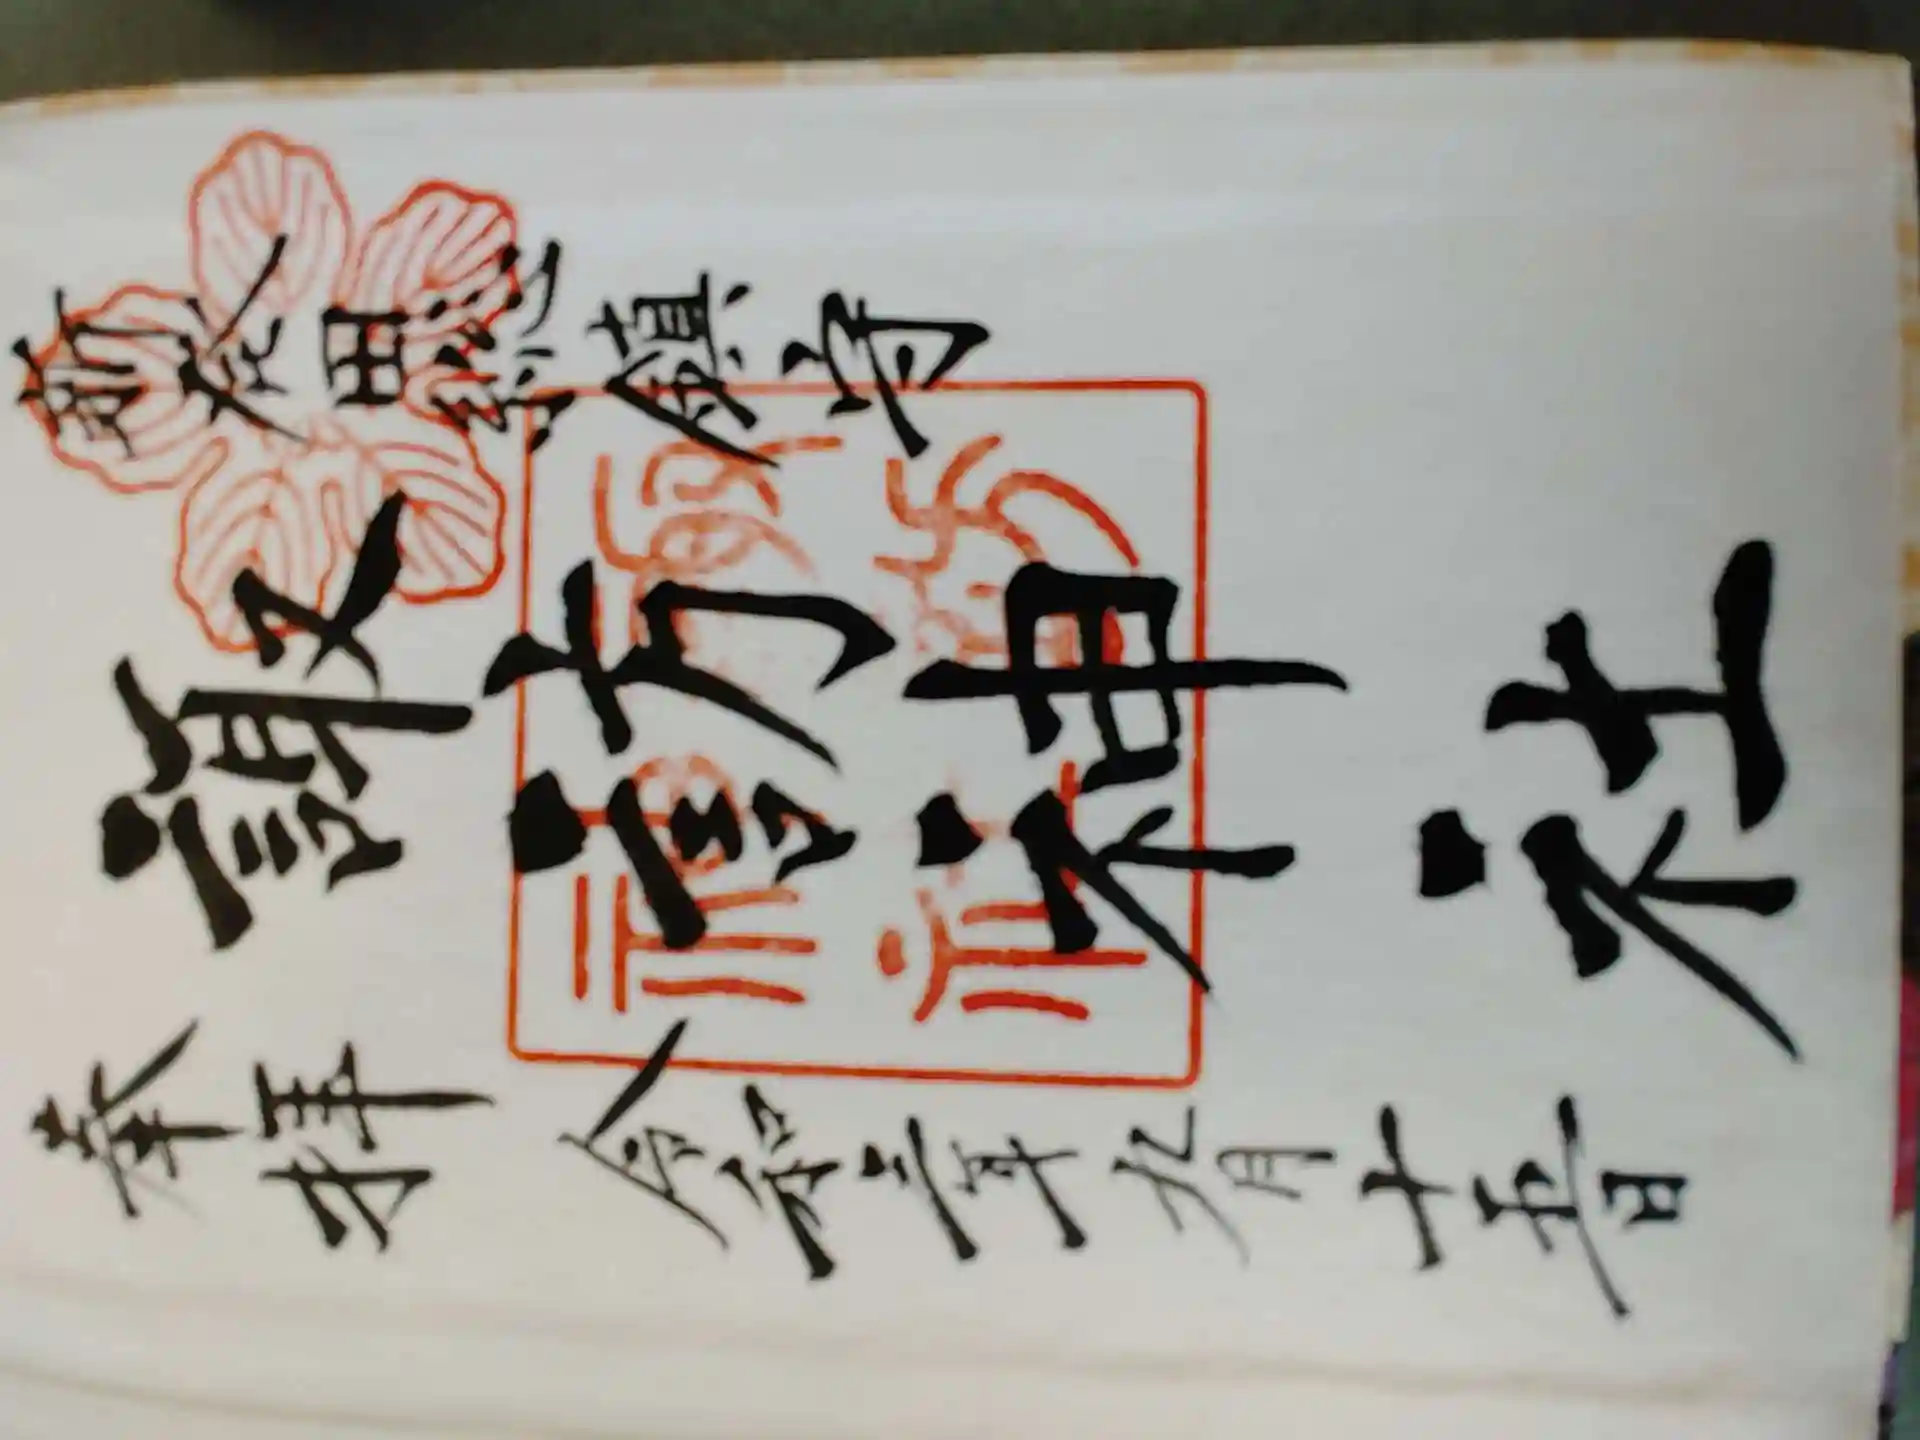 新発田総鎮守
諏訪神社
奉拝 令和三年九月十五日